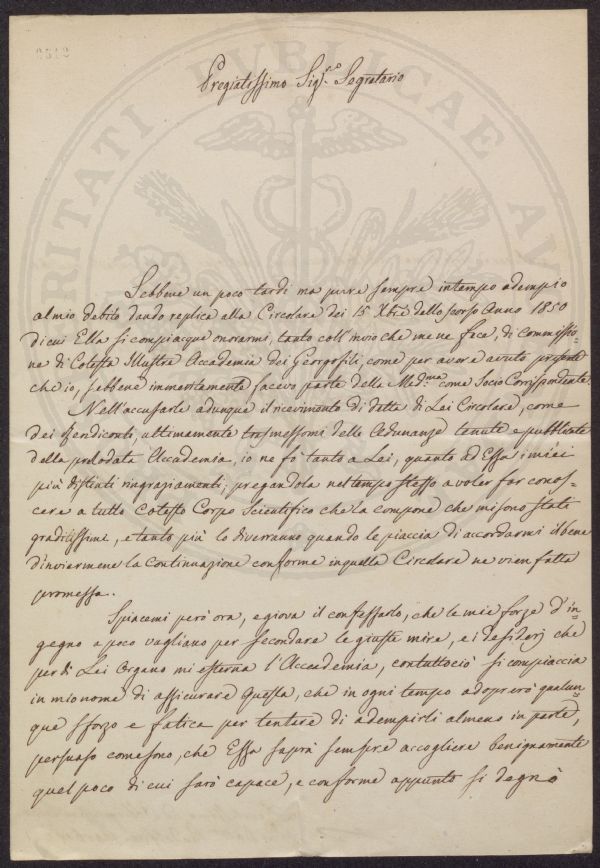 Pregiatissimo Sig.re Segretario
Sebbene un poco tardi ma pure sempre in tempo adempio
al mio debito dando replica alla Circolare dei 15 Xbre dello scorso Anno 1850
di cui Ella si compiacque onorarmi, tanto coll' invio che me ne fece, di commissio=
ne di Cotesta Illustre Accademia dei Georgofili, come per avere avuto presente
che io, sebbene immeritamente facevo parte della Med.ma come Socio Corrispondente.
Nell'accusarle adunque il ricevimento di detta di Lei Circolare, come
dei Rendiconti, ultimamente trasmessomi delle Adunanze tenute e pubblicate
della prelodata Accademia, io ne fò tanto a Lei, quanto ad Essa i miei
più distinti ringraziamenti, pregandola nel tempo stesso a voler far conos=
cere a tutto Cotesto Corpo Scientifico che la compone che mi sono stati
graditissimi, e tanto più lo diverranno quando le piaccia di accordarmi il bene
d'inviarmene la continuazione conforme in quella Circolare ne vien fatta
promessa.
Spiacemi però ora, e giova il confessarlo, che le mie forze d'in=
gegno a poco vagliano per secondare le giuste mire, e i desiderj che
per di Lei Organo mi esterna l'Accademia, contuttociò si compiaccia
in mio nome di assicurare Questa, che in ogni tempo adoprerò qualun=
que sforzo e fatica per tentare di adempirli almeno in parte,
persuaso come sono, che Essa saprà sempre accogliere benignamente
quel poco di cui sarò capace, e conforme appunto si degnò